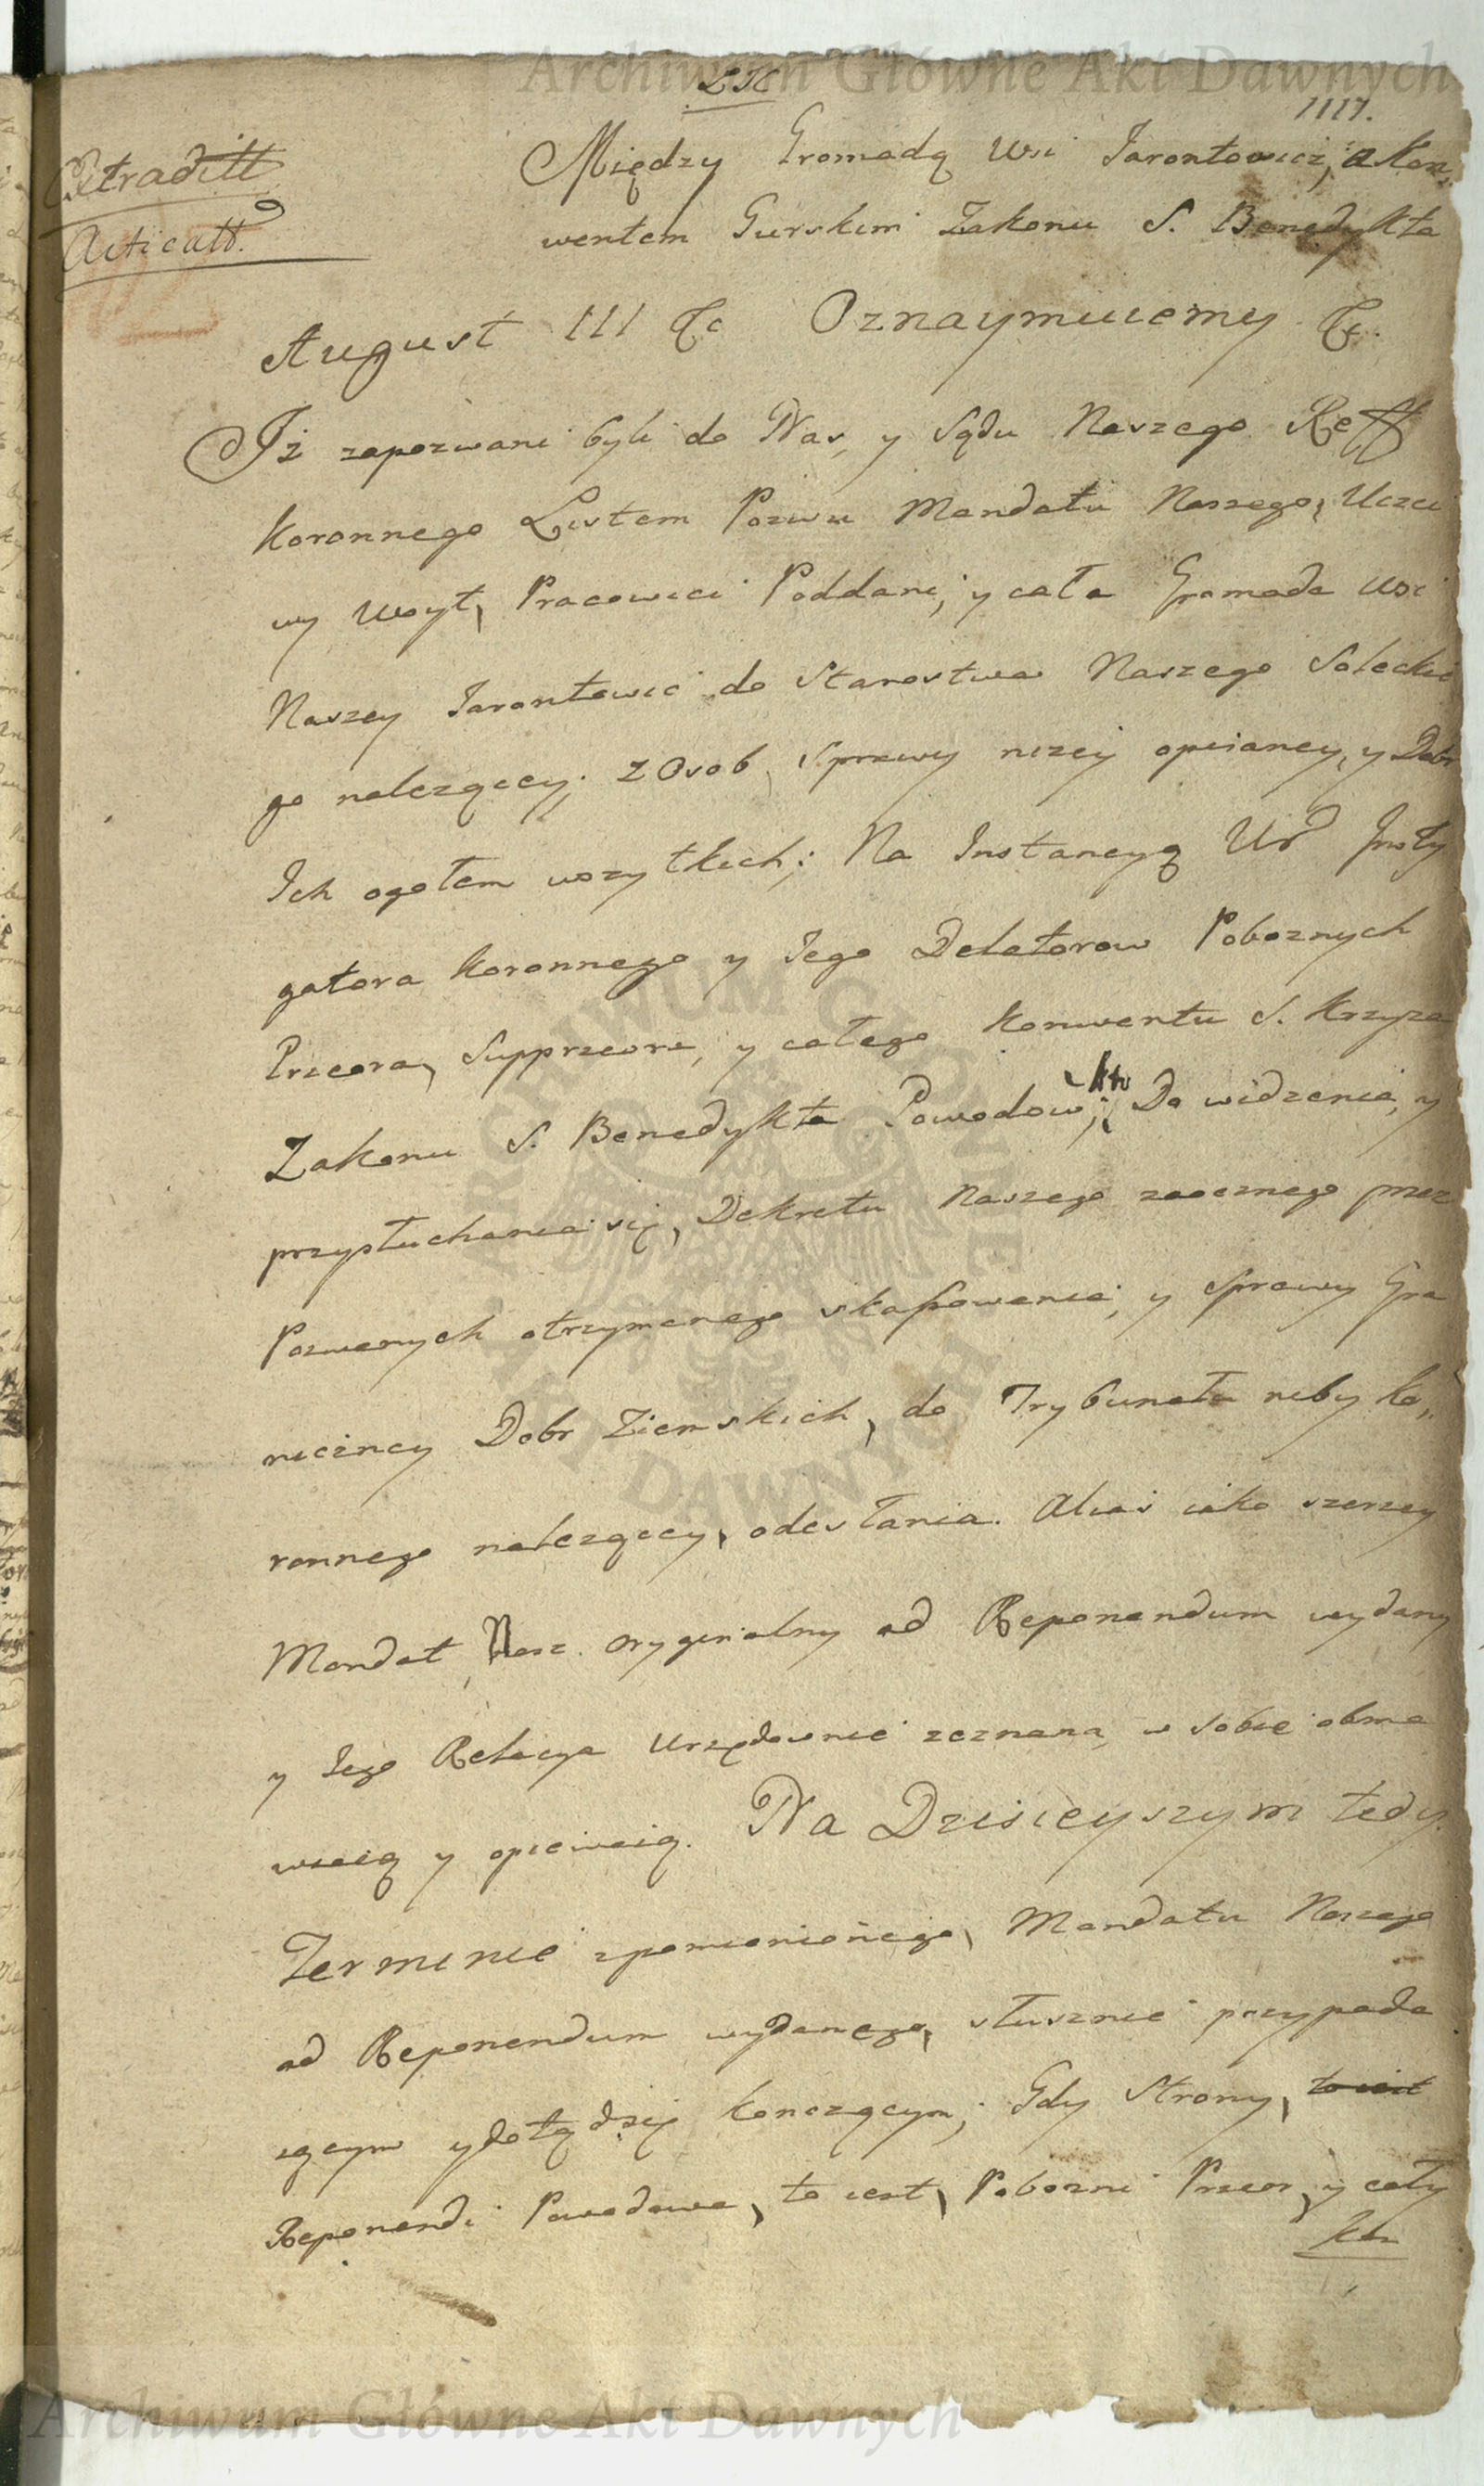 1117.
Extraditt
Acticatt.
Między Gromadą Wsi Jarontowicz, a Kon,,
wentem Gurskim Zakonu S. Benedykta
August III &c Oznaymuiemy &c.
Iż zapozwani byli do Nas, y Sądu Naszego Reff
Koronnego Listem Pozwu Mandatu Naszego, Uczci
wy Woyt, Pracowici Poddani, y cała Gromada Wsi
Naszey Jarontowic do Starostwa Naszego Soleckie
go nalezący; z Osob, Sprawy nizey opisaney, y Dobr
Ich ogołem wszytkich; Na Instancyą Ur Insty
gatora Koronnego y Jego Delatorow Poboznych
Przeora, Supprzeora, y całego Konwentu S. Krzyza
Zakonu S. Benedykta Powodow; Do widzenia, y
przysłuchania się, Dekretu Naszego zaocznego przez
Pozwanych otrzymanego skassowania, y Sprawy Gra
niczney Dobr Ziemskich, do Trybunału niby Ko,,
ronnego nalezący, odesłania. Alias iako szerzey
Mandat Nasz oryginalny ad Reponendum wydany
y Jego Relacya Urzędownie zeznana, w sobie obma
wiaią y opiewaią. Na Dzisieyszym tedy
Terminie zpomienionego, Mandatu Naszego
ad Reponendum wydanego, słusznie przypada
iącym y dotądsię konczącym; Gdy Strony, to iest
Reponendi Powodowa, to iest, Pobozni Przeor, y cały
Kon